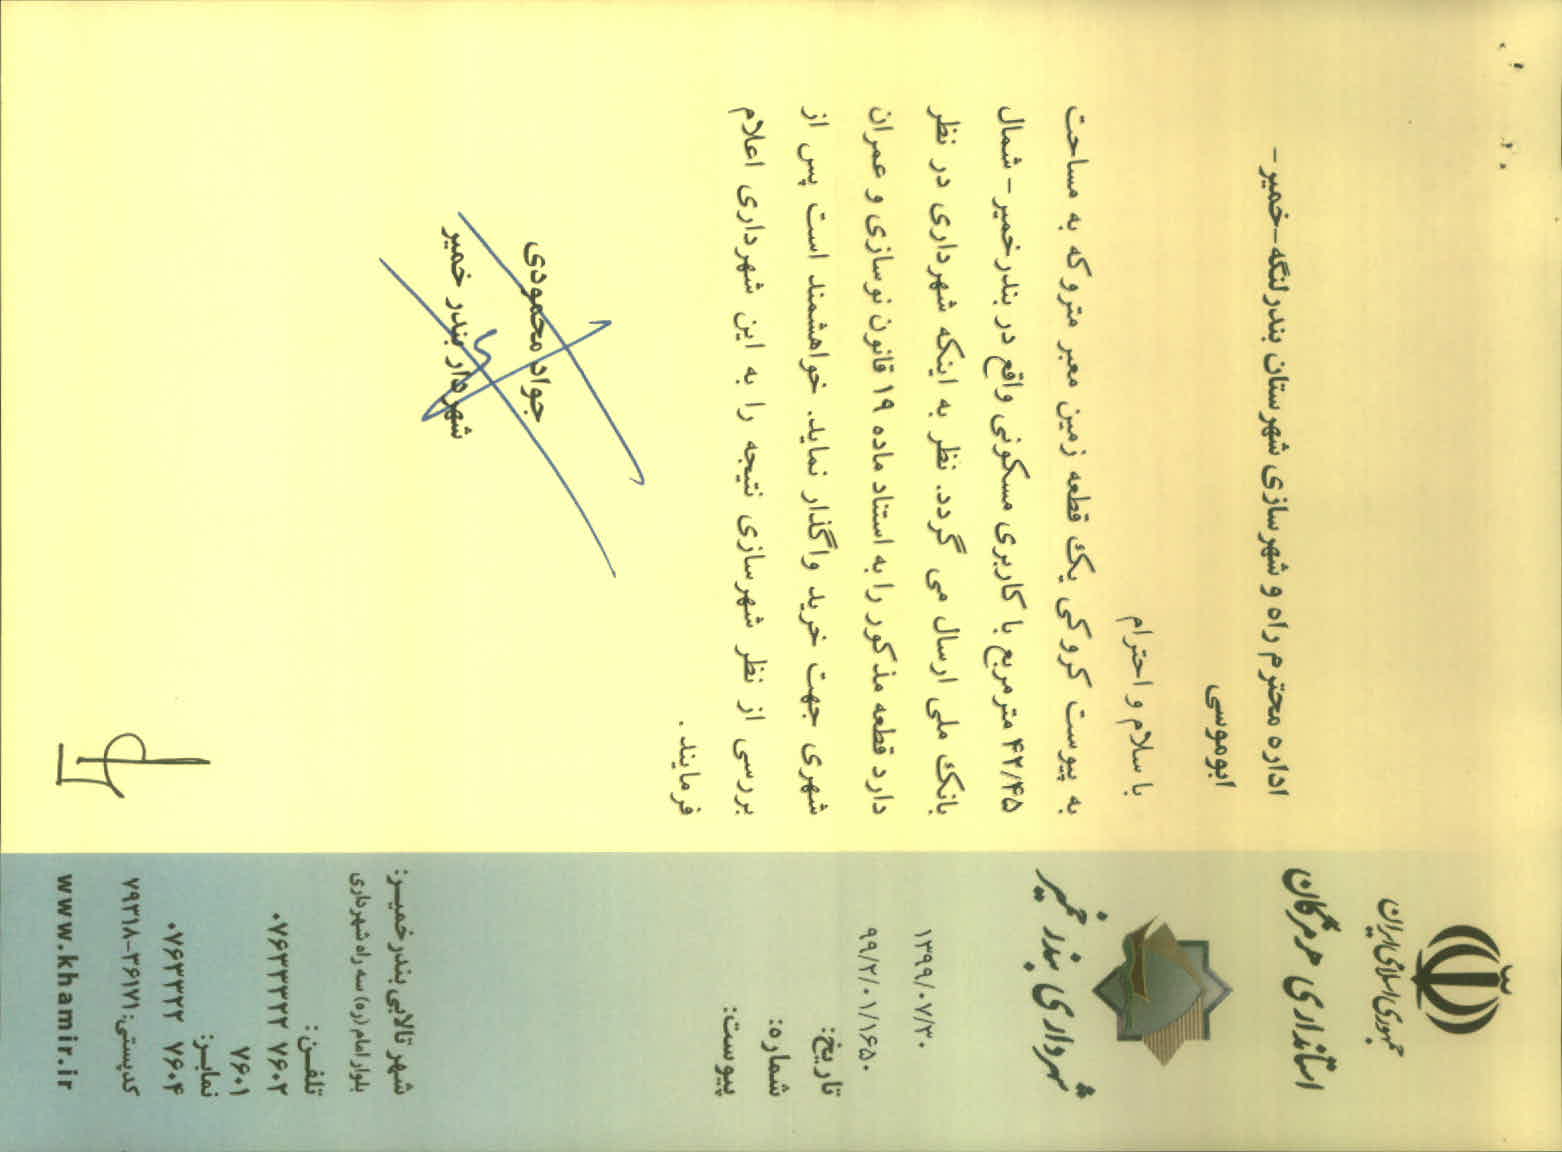 جمهوری اسلامی ایران
استانداری هرمزگان
شهرداری بندر خمیر
۱۳۹۹/۰۷/۳۰
۹۹/۲/۰۱/۱۶۵۰
تاریخ:
شماره:
پیوست:
شهر تالابی بندر خمیـر:
بلوار امام (ره) سه راه شهرداری
تلفـن:
۰۷۶۳۳۲۲ ۷۶۰۲
۷۶۰۱
نمابـر:
۰۷۶۳۳۲۲ ۷۶۰۴
کدپستی: ۳۶۱۷۱-۷۹۳۱۸
www.khamir.ir
اداره محترم راه و شهرسازی شهرستان بندرلنگه-خمیر-
ابوموسی
با سلام و احترام
به پیوست کروکی یک قطعه زمین معبر متروکه به مساحت
۴۲/۴۵ متر مربع با کاربری مسکونی واقع در بندرخمیر-شمال
بانک ملی ارسال می گردد. نظر به اینکه شهرداری در نظر
دارد قطعه مذکور را به استناد ماده ۱۹ قانون نوسازی و عمران
شهری جهت خرید واگذار نماید. خواهشمند است پس از
بررسی از نظر شهرسازی نتیجه را به این شهرداری اعلام
فرمایند .
جواد محمودی
شهردار بندر خمیر